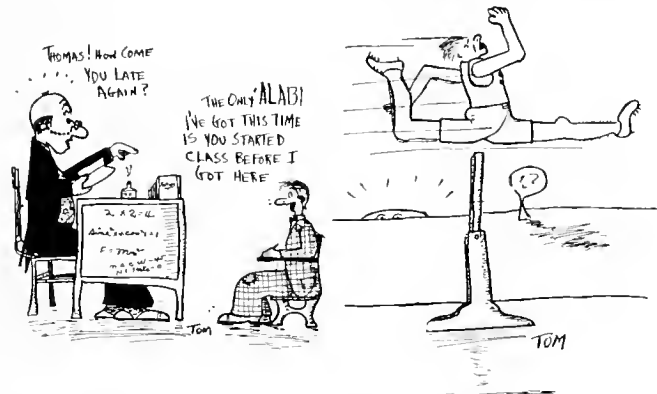 THOMAS! HOW COME
YOU LATE
AGAIN?
THE ONLY ALABI
I'VE GOT THIS TIME
IS YOU STARTED
CLASS BEFORE I
GOT HERE
2 x 2 = 4
TOM
!?
TOM